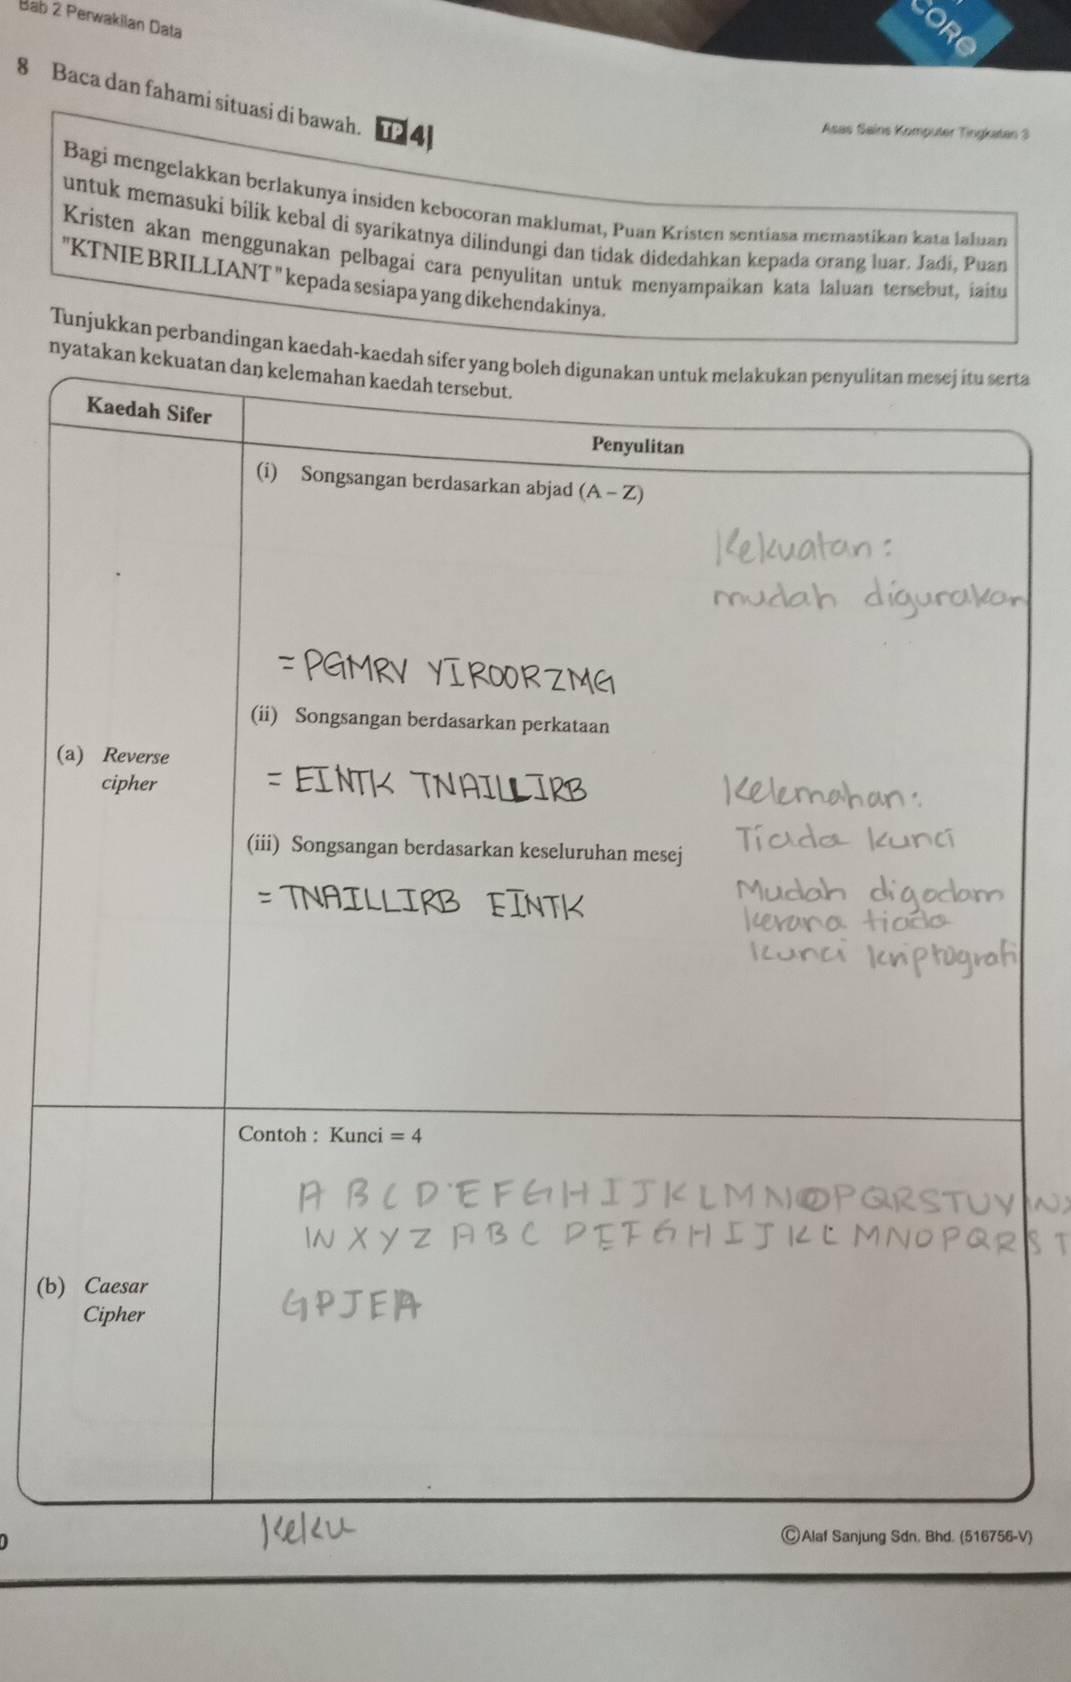 Bab 2 Perwakilan Data
CORE
8 Baca dan fahami situasi di bawah. TP 4
Asas Sains Komputer Tingkatan 3
Bagi mengelakkan berlakunya insiden kebocoran maklumat, Puan Kristen sentiasa memastikan kata laluan
untuk memasuki bilik kebal di syarikatnya dilindungi dan tidak didedahkan kepada orang luar. Jadi, Puan
Kristen akan menggunakan pelbagai cara penyulitan untuk menyampaikan kata laluan tersebut, iaitu
"KTNIE BRILLIANT" kepada sesiapa yang dikehendakinya.
Tunjukkan perbandingan kaedah-kaedah sifer yang boleh digunakan untuk melakukan penyulitan mesej itu serta
nyatakan kekuatan dan kelemahan kaedah tersebut.
Kaedah Sifer
Penyulitan
(i) Songsangan berdasarkan abjad (A – Z)
Kekuatan:
mudah digurakan
= PGMRV YIROORZMG
(ii) Songsangan berdasarkan perkataan
(a) Reverse
cipher
= EINTK TNAILLIRB
Kelemahan:
Tiada kunci
(iii) Songsangan berdasarkan keseluruhan mesej
= TNAILLIRB EINTK
Mudah digodam
kerana tiada
kunci kriptografi
Contoh : Kunci = 4
A B C D E F G H I J K L M N O P Q R S T U V W X
W X Y Z A B C D E F G H I J K L M N O P Q R S T
(b) Caesar
Cipher
GPJEA
Keku
©Alaf Sanjung Sdn. Bhd. (516756-V)